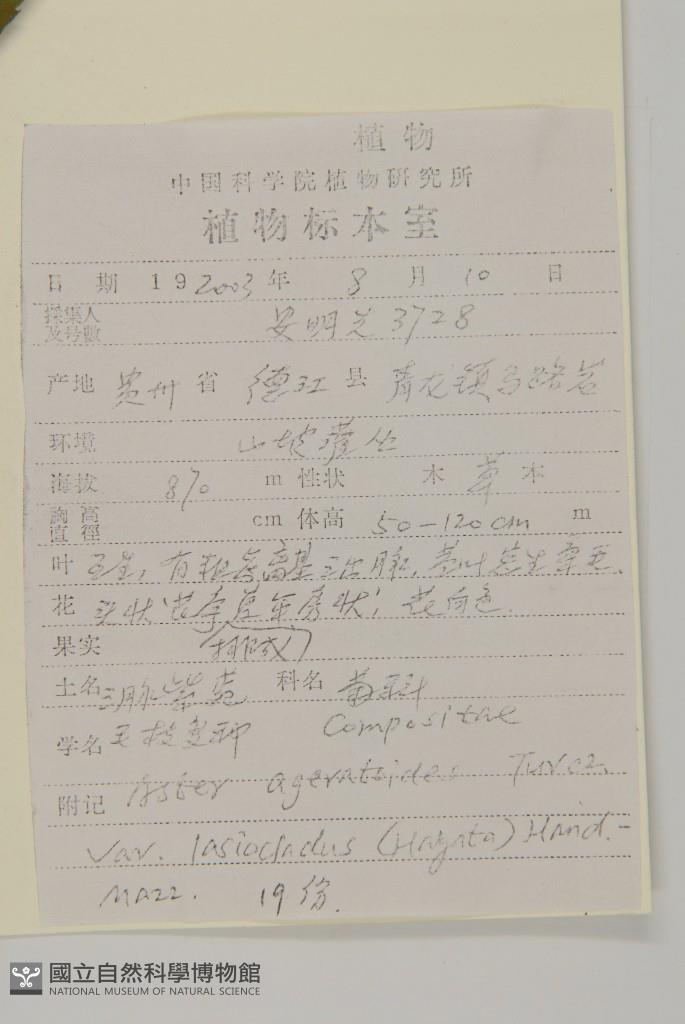 植物
中国科学院植物研究所
植物标本室
日 期 19 2003 年 8 月 10 日
採集人
及号數 安明先 3728
产地 贵州 省 德江 县 青龙镇马路岩
环境 山坡灌丛
海拔 810 m 性状 木 草 本
胸高
直徑 cm 体高 50-120cm m
叶 互生, 有粗齿离基三出脉, 茎叶
花 头状花序 房状, 花白色.
果实 排成
土名 三脉紫菀 科名 菊科
学名 毛枝变种 Compositae
附记 Aster ageratoides Turcz.
var. lasiocladus (Hayata) Hand.-
Mazz. 19份.
國立自然科學博物館
NATIONAL MUSEUM OF NATURAL SCIENCE